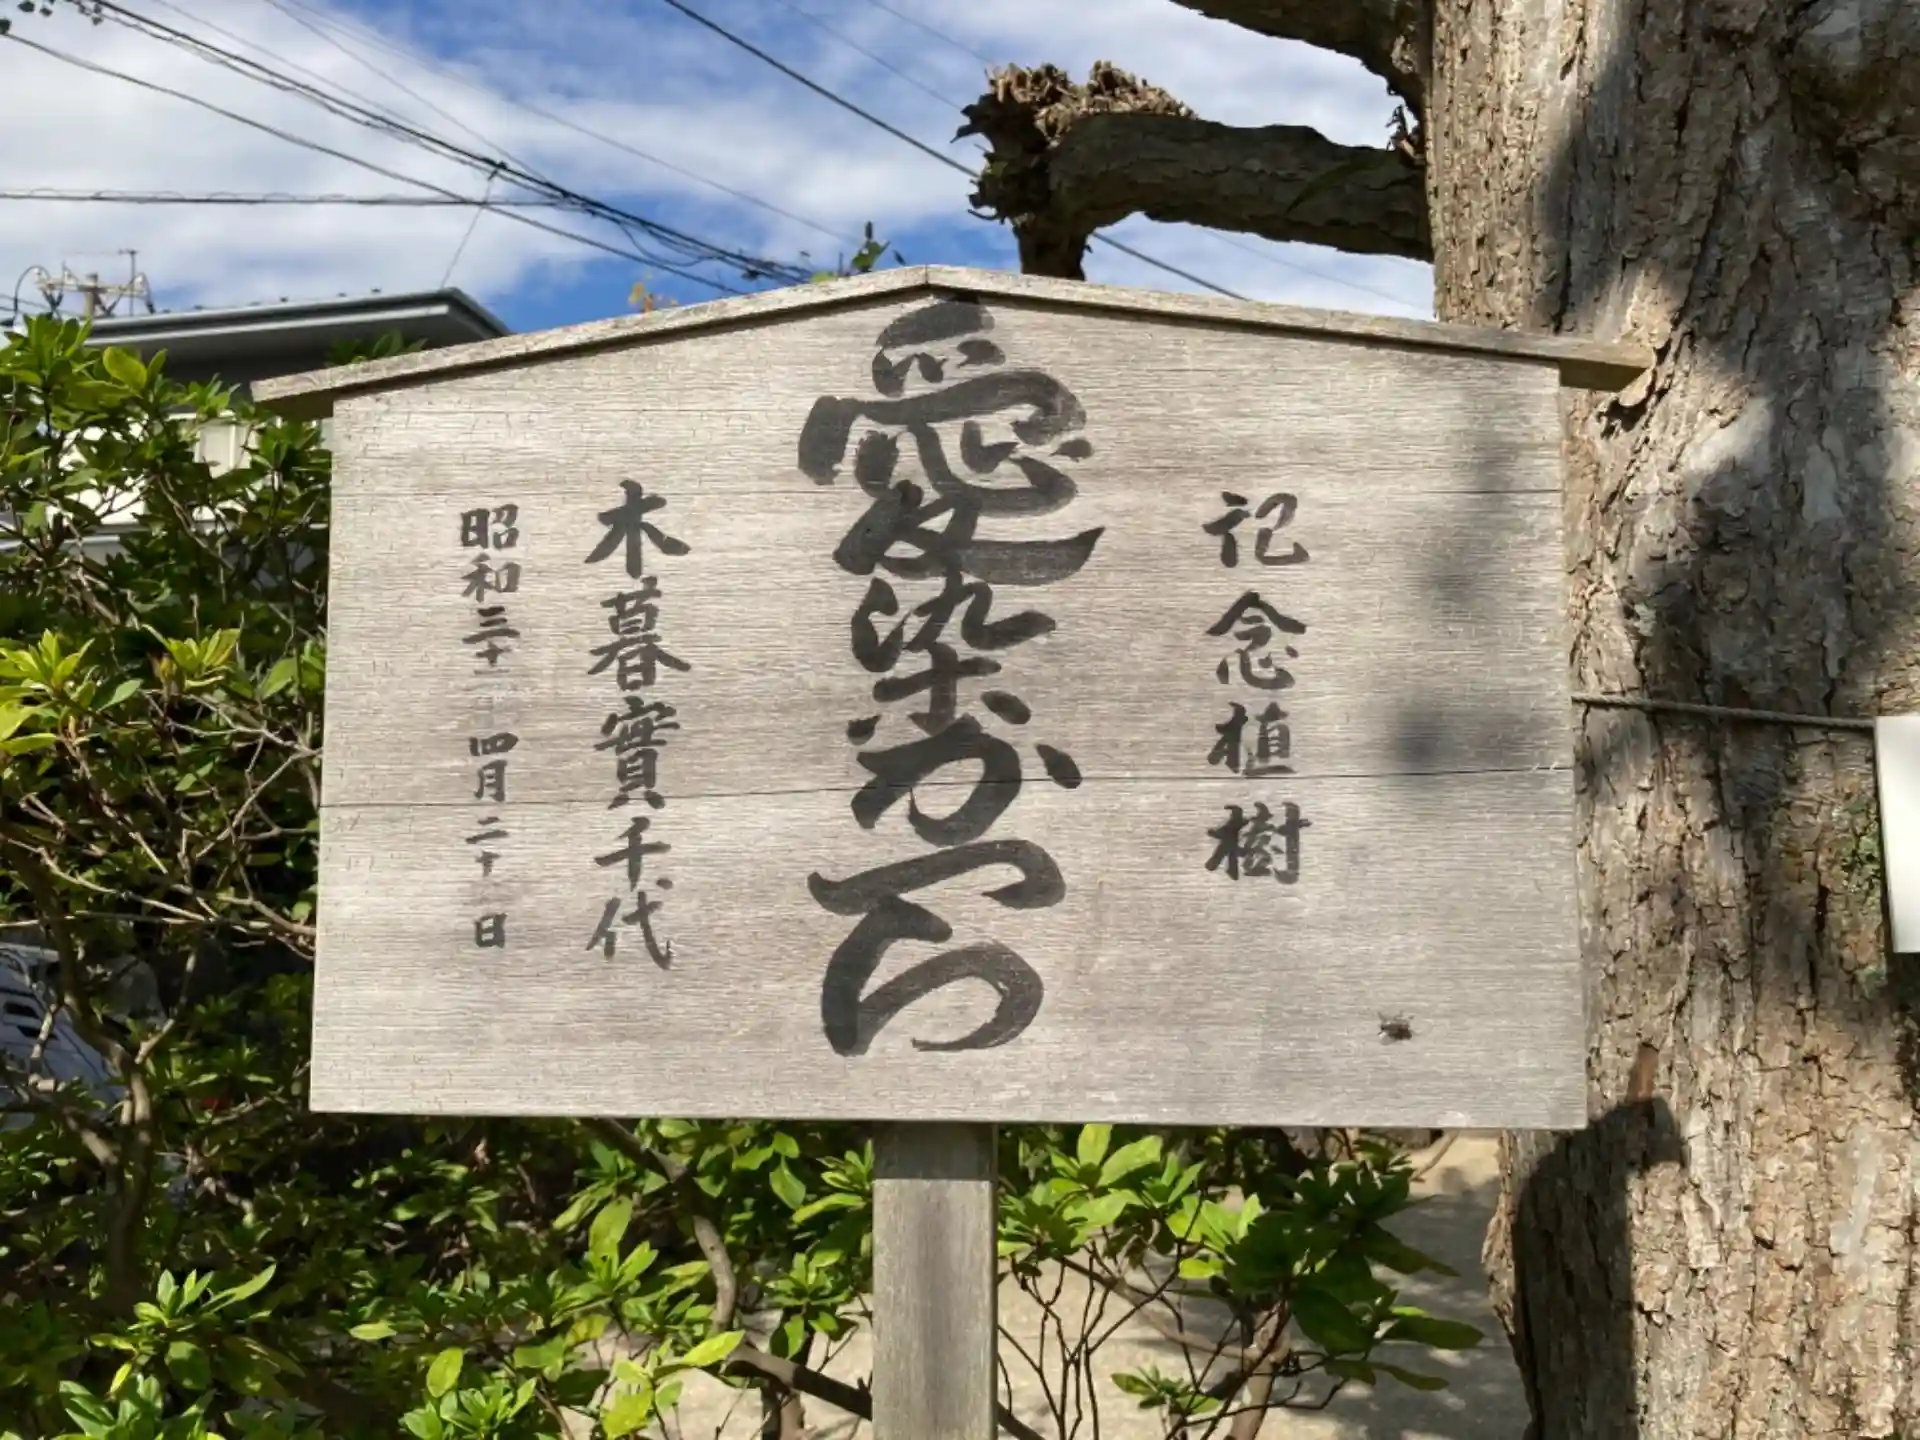 記念植樹
愛染かつら
木暮實千代
昭和三十二年四月二十八日